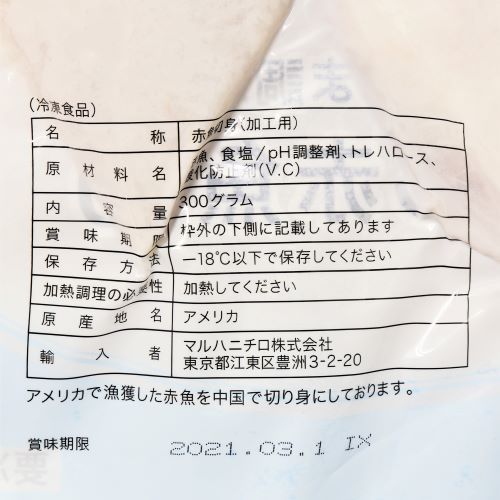 (冷凍食品)
名称 赤魚切身(加工用)
原材料名 魚、食塩/pH調整剤、トレハロース、
酸化防止剤(V.C)
内容量 300グラム
賞味期限 枠外の下側に記載してあります
保存方法 －18℃以下で保存してください
加熱調理の必要性 加熱してください
原産地名 アメリカ
輸入者 マルハニチロ株式会社
東京都江東区豊洲3-2-20
アメリカで漁獲した赤魚を中国で切り身にしております。
賞味期限 2021.03.1 IX